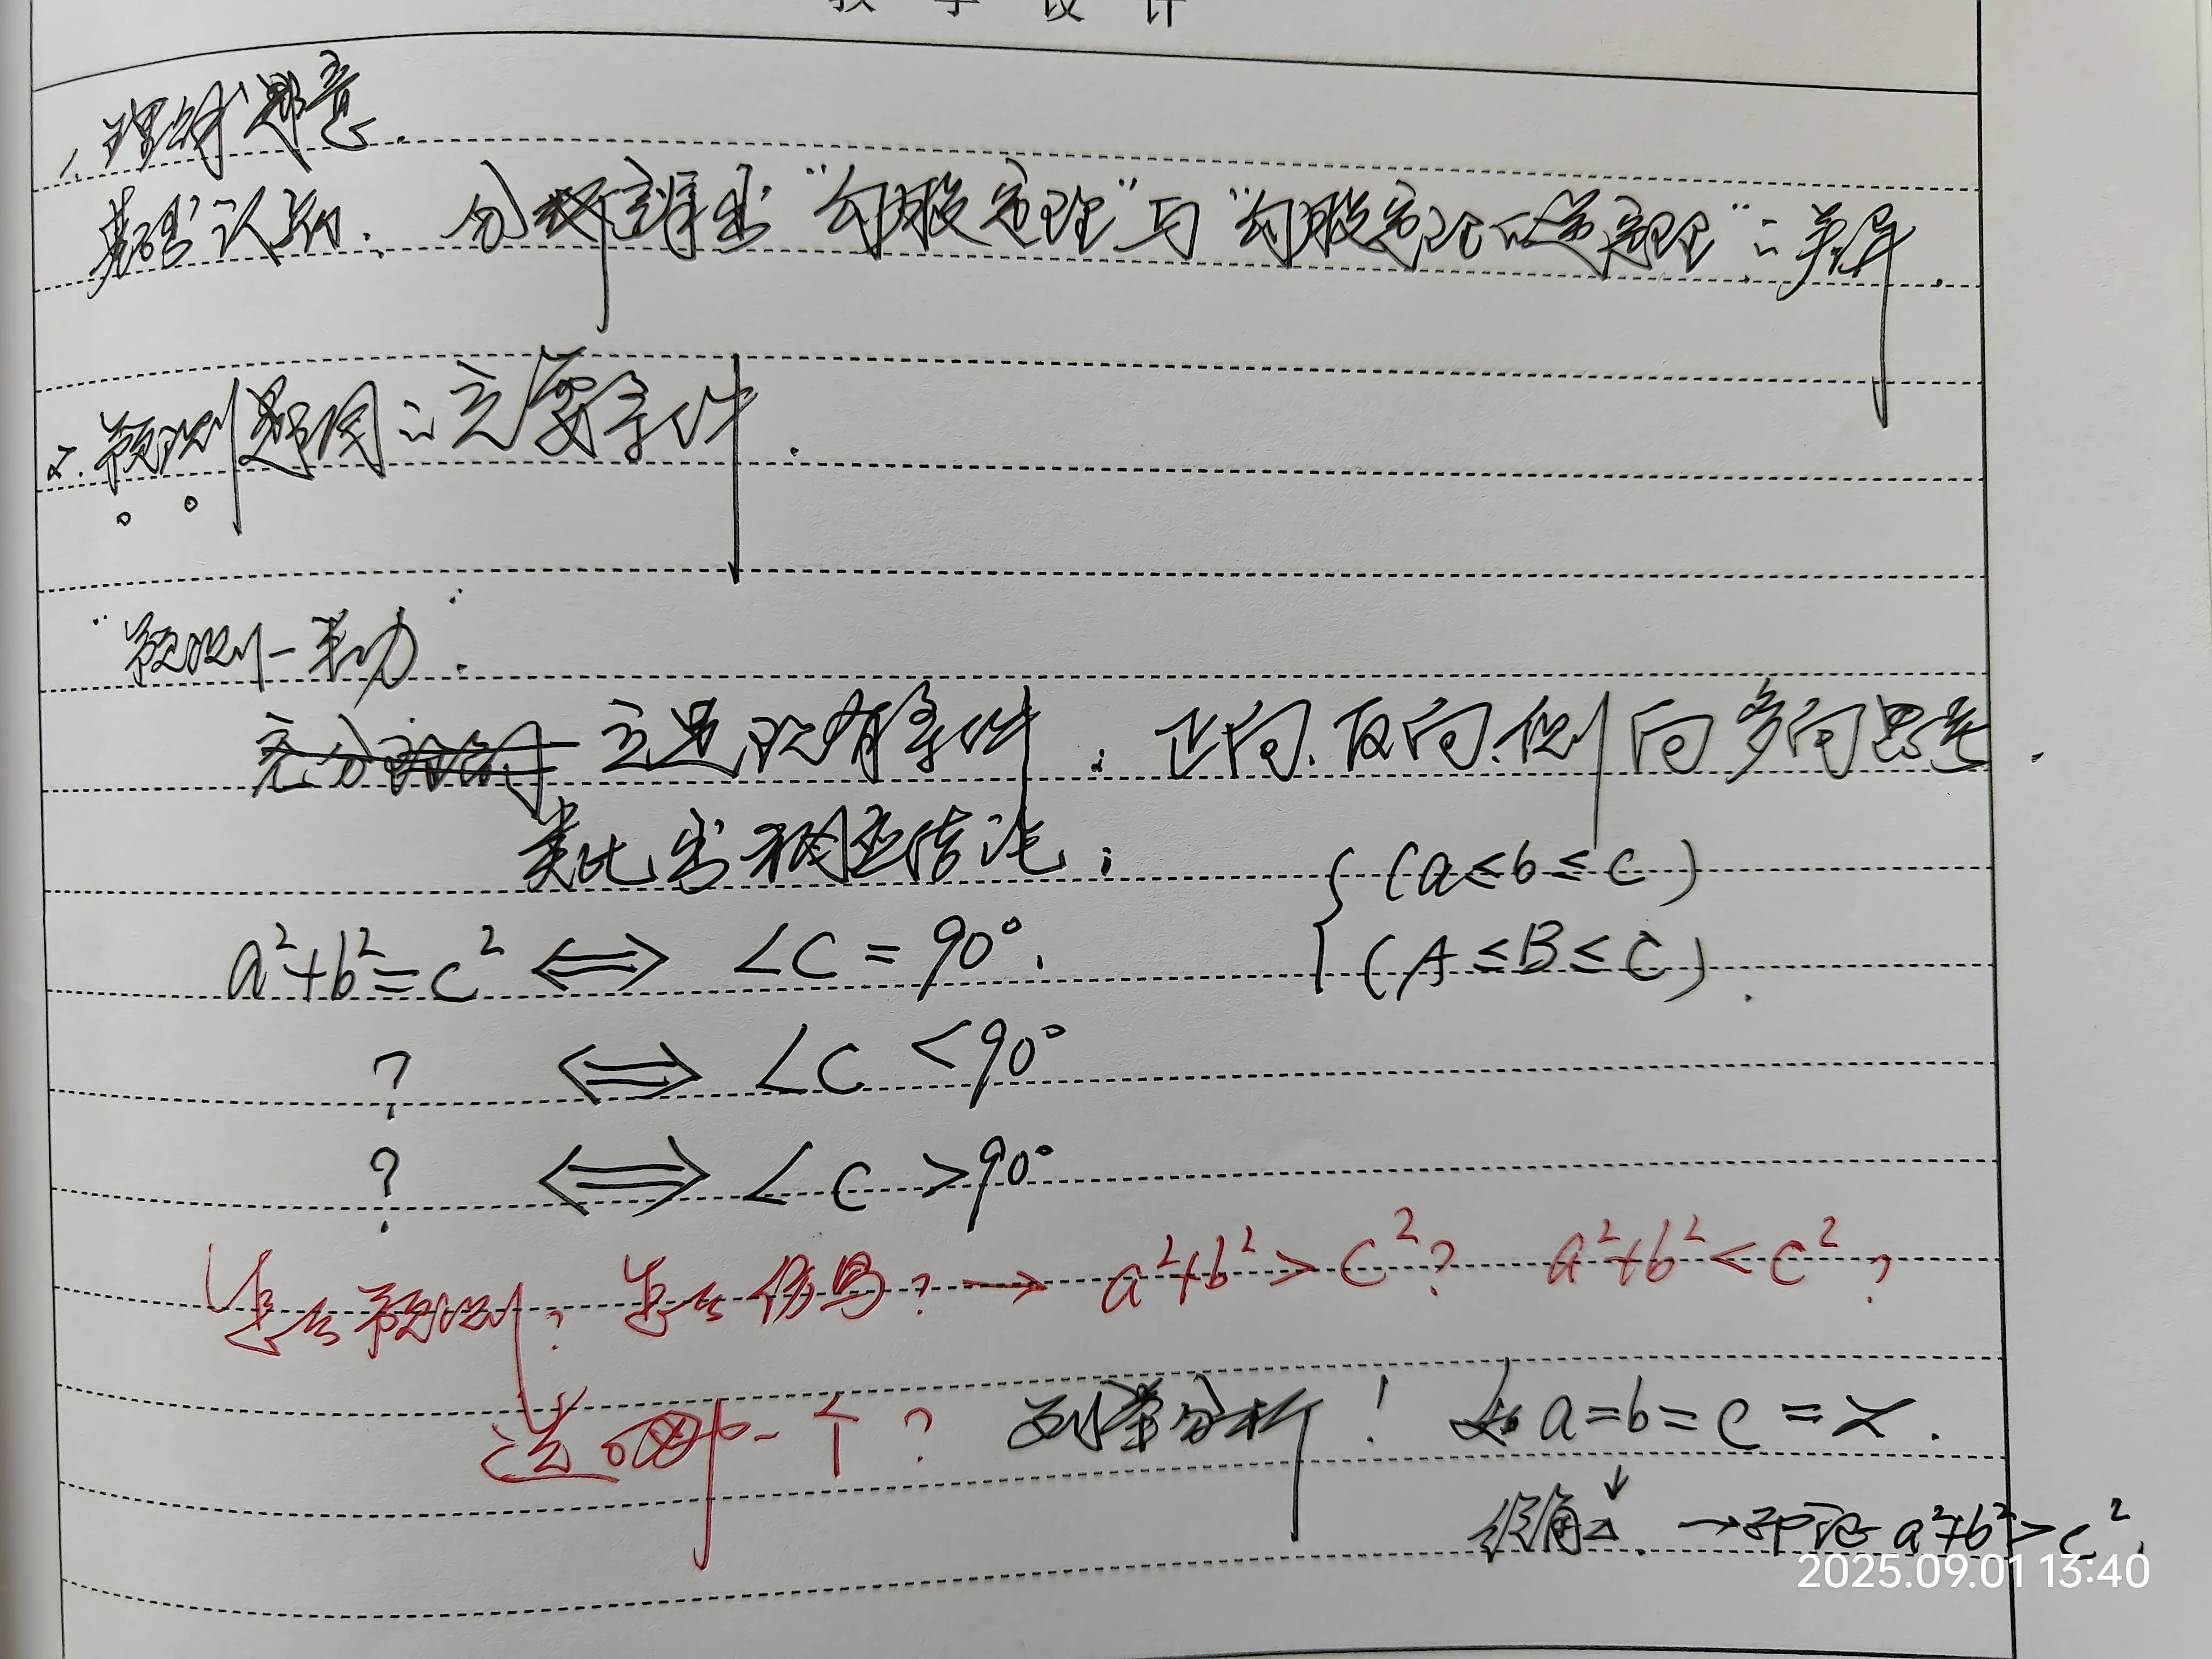 教学设计
1. 理解题意.
基础认知: 分析辩出“勾股定理”与“勾股定理的逆定理”的差异.
2. 预测题问的充要条件.
“预测-单功”:
立足现有条件: 正向.反向.侧向多向思考.
类比出相应结论:
{ (a≤b≤c)
a²+b²=c² ⟺ ∠C=90°. (A≤B≤C).
? ⟺ ∠C<90°
? ⟺ ∠C>90°
怎么预测? 怎么仿写? → a²+b²>c²? a²+b²<c²?
选哪一个? 列举分析! 如a=b=c=x.
锐角△. →印证a²+b²>c².
2025.09.01 13:40